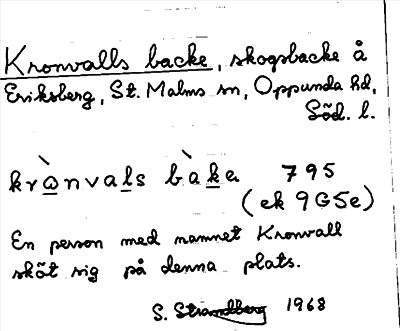 Kronvalls backe, skogsbacke å
Eriksberg, St. Malms sn, Oppunda hd,
Söd. l.
krànvals bàka 795
(ek 9G5e)
En person med namnet Kronvall
sköt sig på denna plats.
S. Strandberg 1968